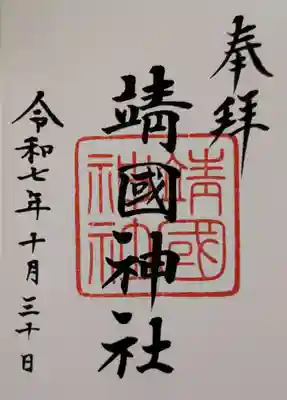 奉拝
靖國神社
靖國
神社
令和七年十月三十日